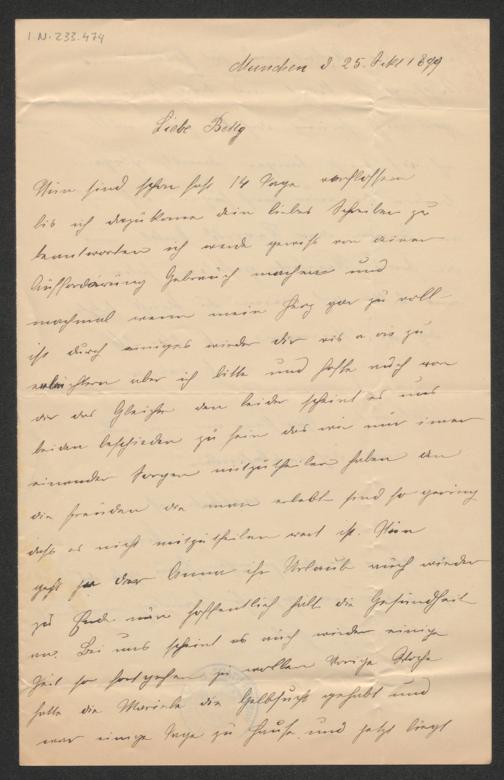 I.N. 233.474
München d. 25. Okt 1899
Liebe Betty
Nun sind schon fast 14 Tage verflossen
bis ich dazu kame dein liebes Schreiben zu
beantworten ich werde gewiß von deiner
Aufforderung Gebrauch machen und
machmal wenn mein Herz gar zu voll
ist durch einiges wieder dir vis a vis zu
erleichtern aber ich bitte und hoffe auch von
dir das Gleiche den leider scheint es uns
beiden beschieden zu sein das wir nur imer
einander Sorgen mitzutheilen haben den
die Freuden die man erlebt sind so gering
daß es nicht mitzutheilen wert ist. Nun
geht der Anna ihr Urlaub auch wieder
zu Ende nun hoffentlich hält die Gesundheit
an. Bei uns scheint es auch wieder einige
Zeit so fortgehen zu wollen Vorige Woche
hatte die Mariele die Gelbsucht gehabt und
war einige Tage zu Hause und jetzt liegt